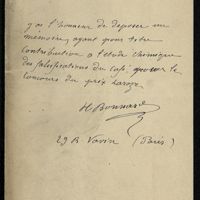 J'ai l'honneur de déposer un
mémoire, ayant pour titre
Contribution à l'étude chimique
des falsifications du café pour le
concours du prix
H Bonnard
29 R Vavin (Paris)